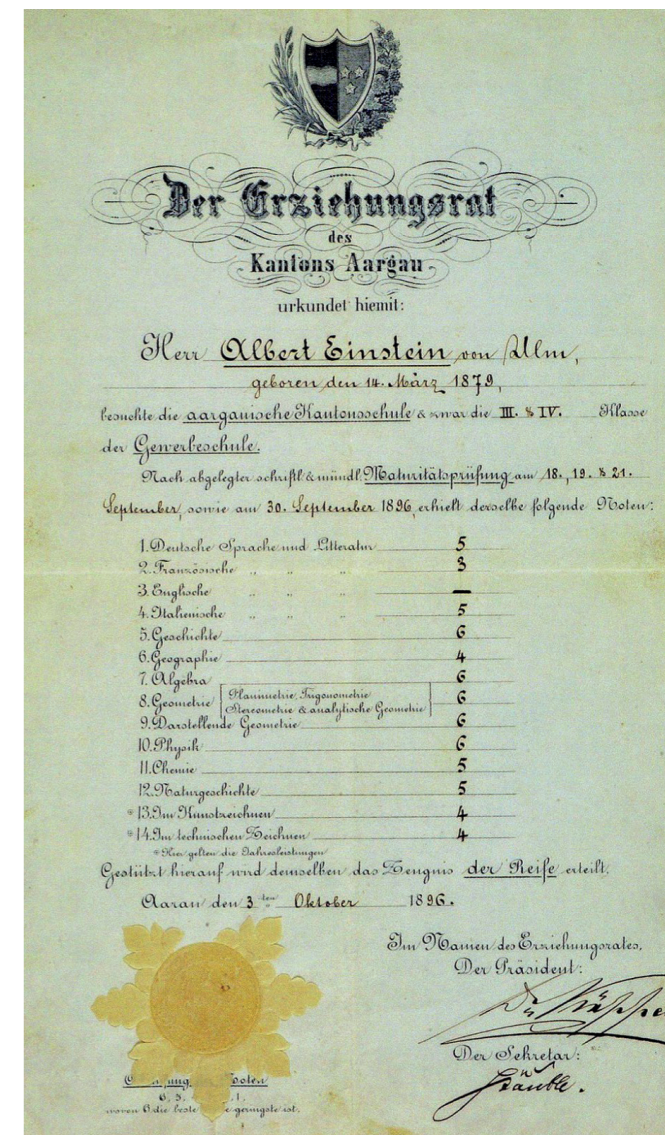 Der Erziehungsrat
des
Kantons Aargau
urkundet hiemit:
Herr Albert Einstein von Ulm,
geboren den 14. März 1879,
besuchte die aargauische Kantonsschule & zwar die III. & IV. Klasse
der Gewerbeschule.
Nach abgelegter schriftl. & mündl. Maturitätsprüfung am 18., 19. & 21.
September, sowie am 30. September 1896, erhielt derselbe folgende Noten:
1. Deutsche Sprache und Litteratur 5
2. Französische „ „ „ 3
3. Englische „ „ „ —
4. Italienische „ „ „ 5
5. Geschichte 6
6. Geographie 4
7. Algebra 6
8. Geometrie [Planimetrie, Trigonometrie
Stereometrie & analytische Geometrie] 6
9. Darstellende Geometrie 6
10. Physik 6
11. Chemie 5
12. Naturgeschichte 5
*13. Im Kunstzeichnen 4
*14. Im technischen Zeichnen 4
*Hier gelten die Jahresleistungen
Gestützt hierauf wird demselben das Zeugnis der Reife erteilt.
Aarau den 3ten Oktober 1896.
Im Namen des Erziehungsrates,
Der Präsident:
Der Sekretär:
Stäuble.
Noten
6, 5, 1,
wovon 6 die beste geringste ist.